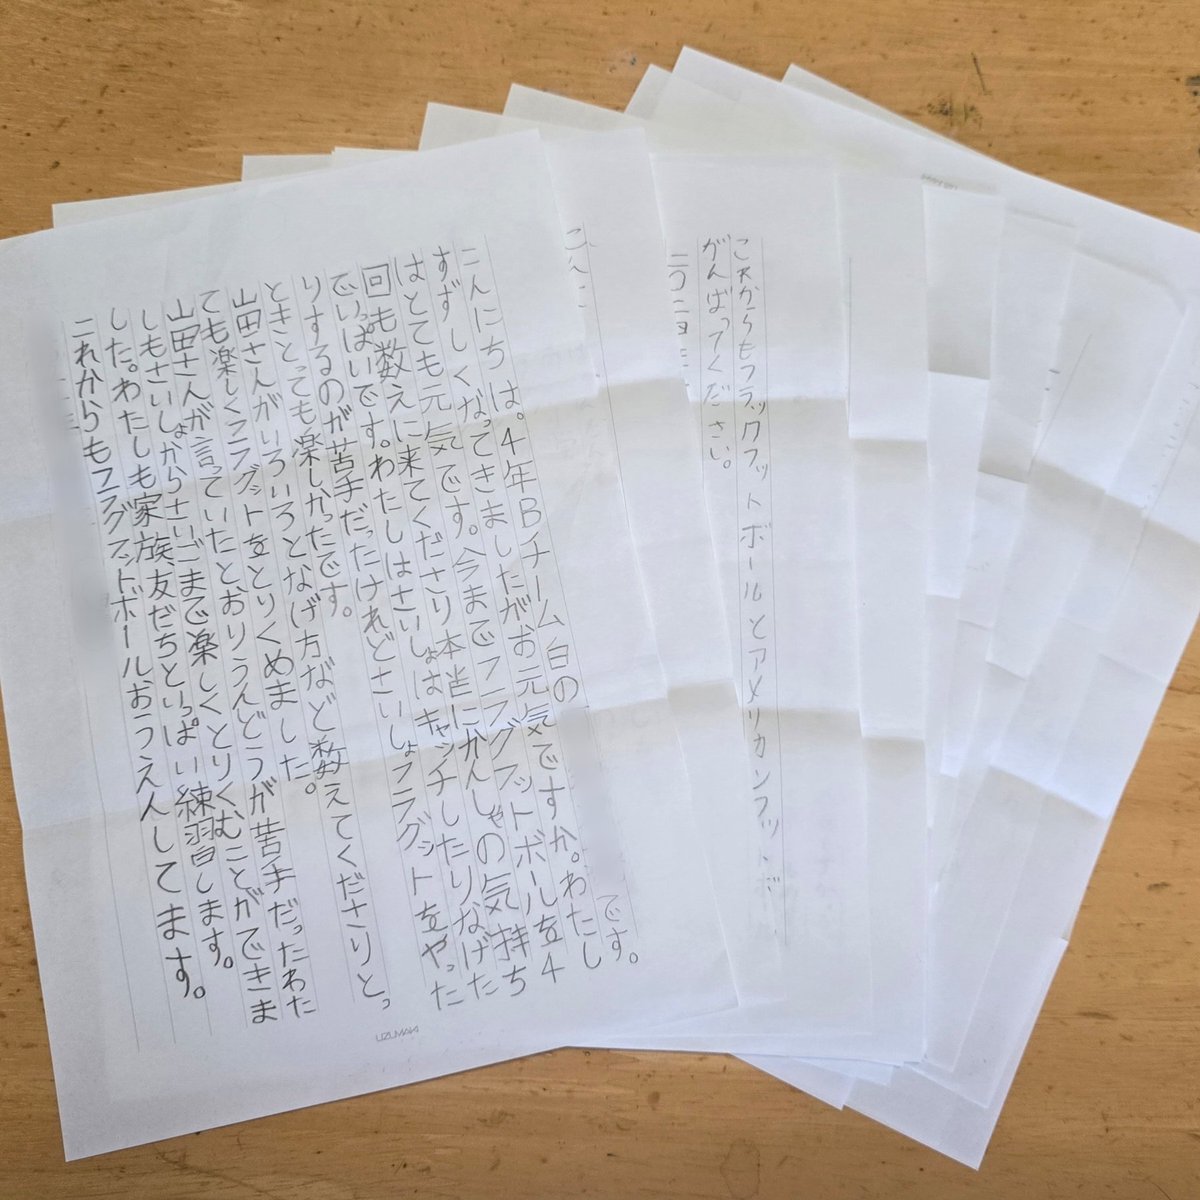 こんにちは。4年Bチーム白の
です。
すずしくなってきましたがお元気ですか。わたし
はとても元気です。今までフラグフットボールを4
回も数えに来てくださり本当にかんしゃの気持ち
でいっぱいです。わたしはさいしょはキャッチしたりなげた
りするのが苦手だったけれどさいしょフラグットをやった
ときとっても楽しかったです。
山田さんがいろいろとなげ方など数えてくださりとっ
ても楽しくフラグットをとりくめました。
山田さんが言っていたとおりうんどうが苦手だったわた
しもさいしょからさいごまで楽しくとりくむことができま
した。わたしも家族、友だちといっぱい練習します。
これからもフラグフットボールおうえんしてます。
UZUMAKI
これからもフラッグフットボールとアメリカンフットボ
がんばってください。
こんに